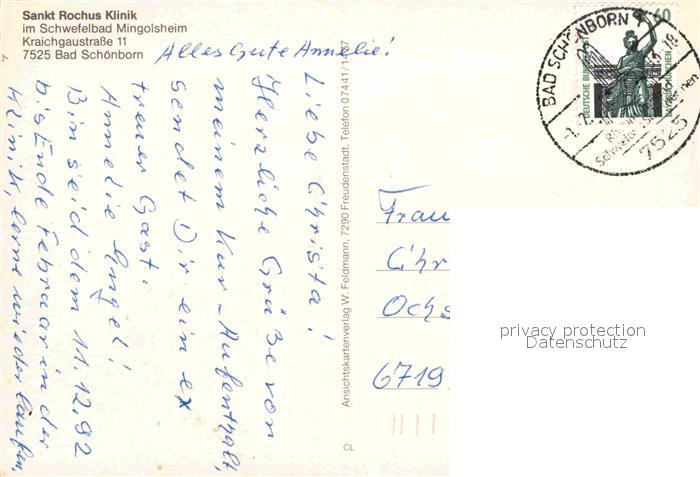 Sankt Rochus Klinik
im Schwefelbad Mingolsheim
Kraichgaustraße 11
7525 Bad Schönborn
Alles Gute Annelie!
Liebe Christa!
Herzliche Grüße von
meinem Kur-Aufenthalt,
sendet Dir ein ex
treuer Gast:
Annelie Engel!
Bin seid dem 11.12.92
bis Ende Februar in der
Klinik, lerne wieder laufen,
Ansichtskartenverlag W. Feldmann, 7290 Freudenstadt, Telefon 07441/1457
CL
Frau
Chr
Ochs
6719
BAD SCHÖNBORN 1
60
DEUTSCHE BUNDES
7525
privacy protection
Datenschutz